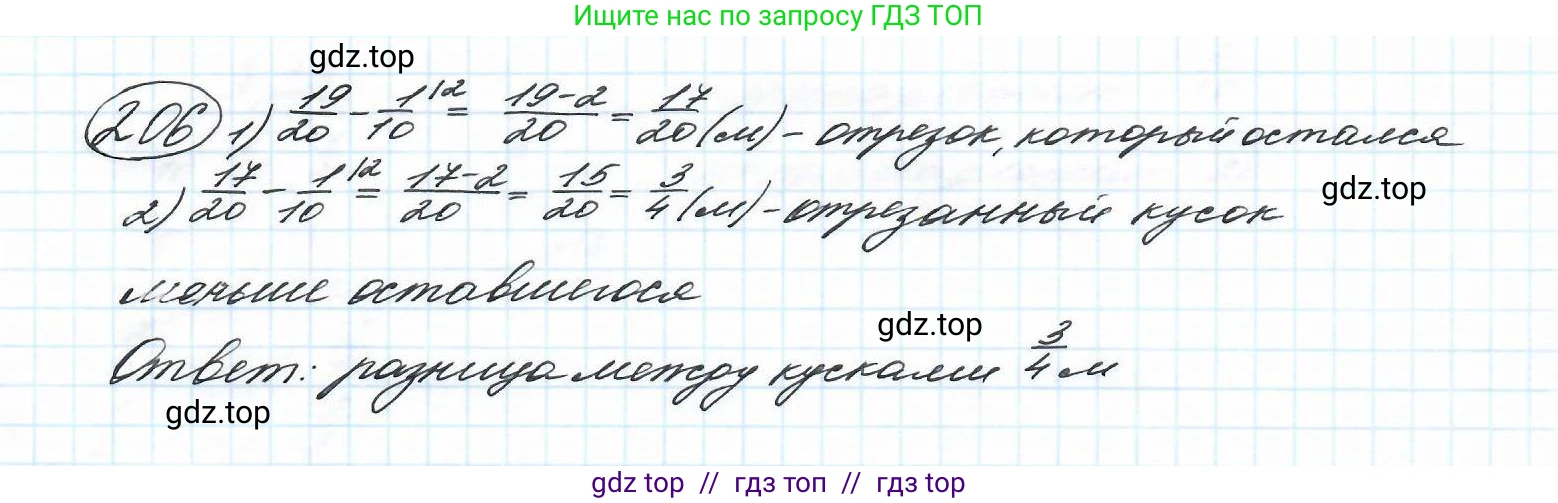 Ищите нас по запросу ГДЗ ТОП
gdz.top
206 1) 19/20 - 1/10 |2 = 19-2/20 = 17/20 (м) - отрезок, который остался
2) 17/20 - 1/10 |2 = 17-2/20 = 15/20 = 3/4 (м) - отрезанный кусок
gdz.top
меньше оставшегося
gdz.top
Ответ: разница между кусками 3/4 м
gdz.top
gdz top // гдз топ // gdz top